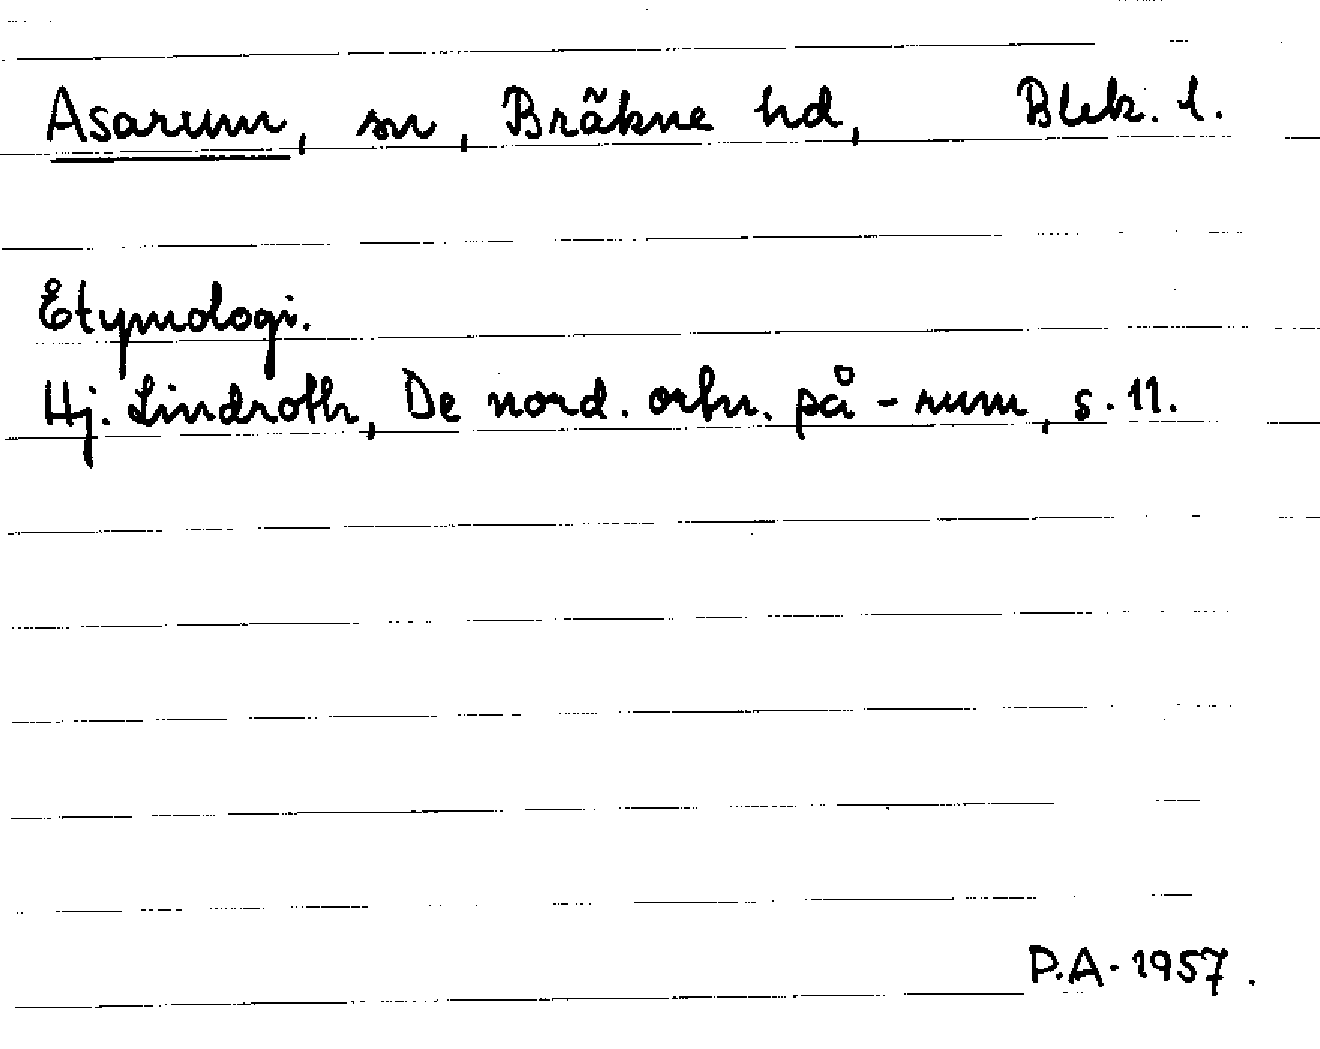 Asarum, sn, Bräkne hd, Blek. l.
Etymologi.
Hj. Lindroth, De nord. ortn. på -rum, s. 11.
P.A. 1957.